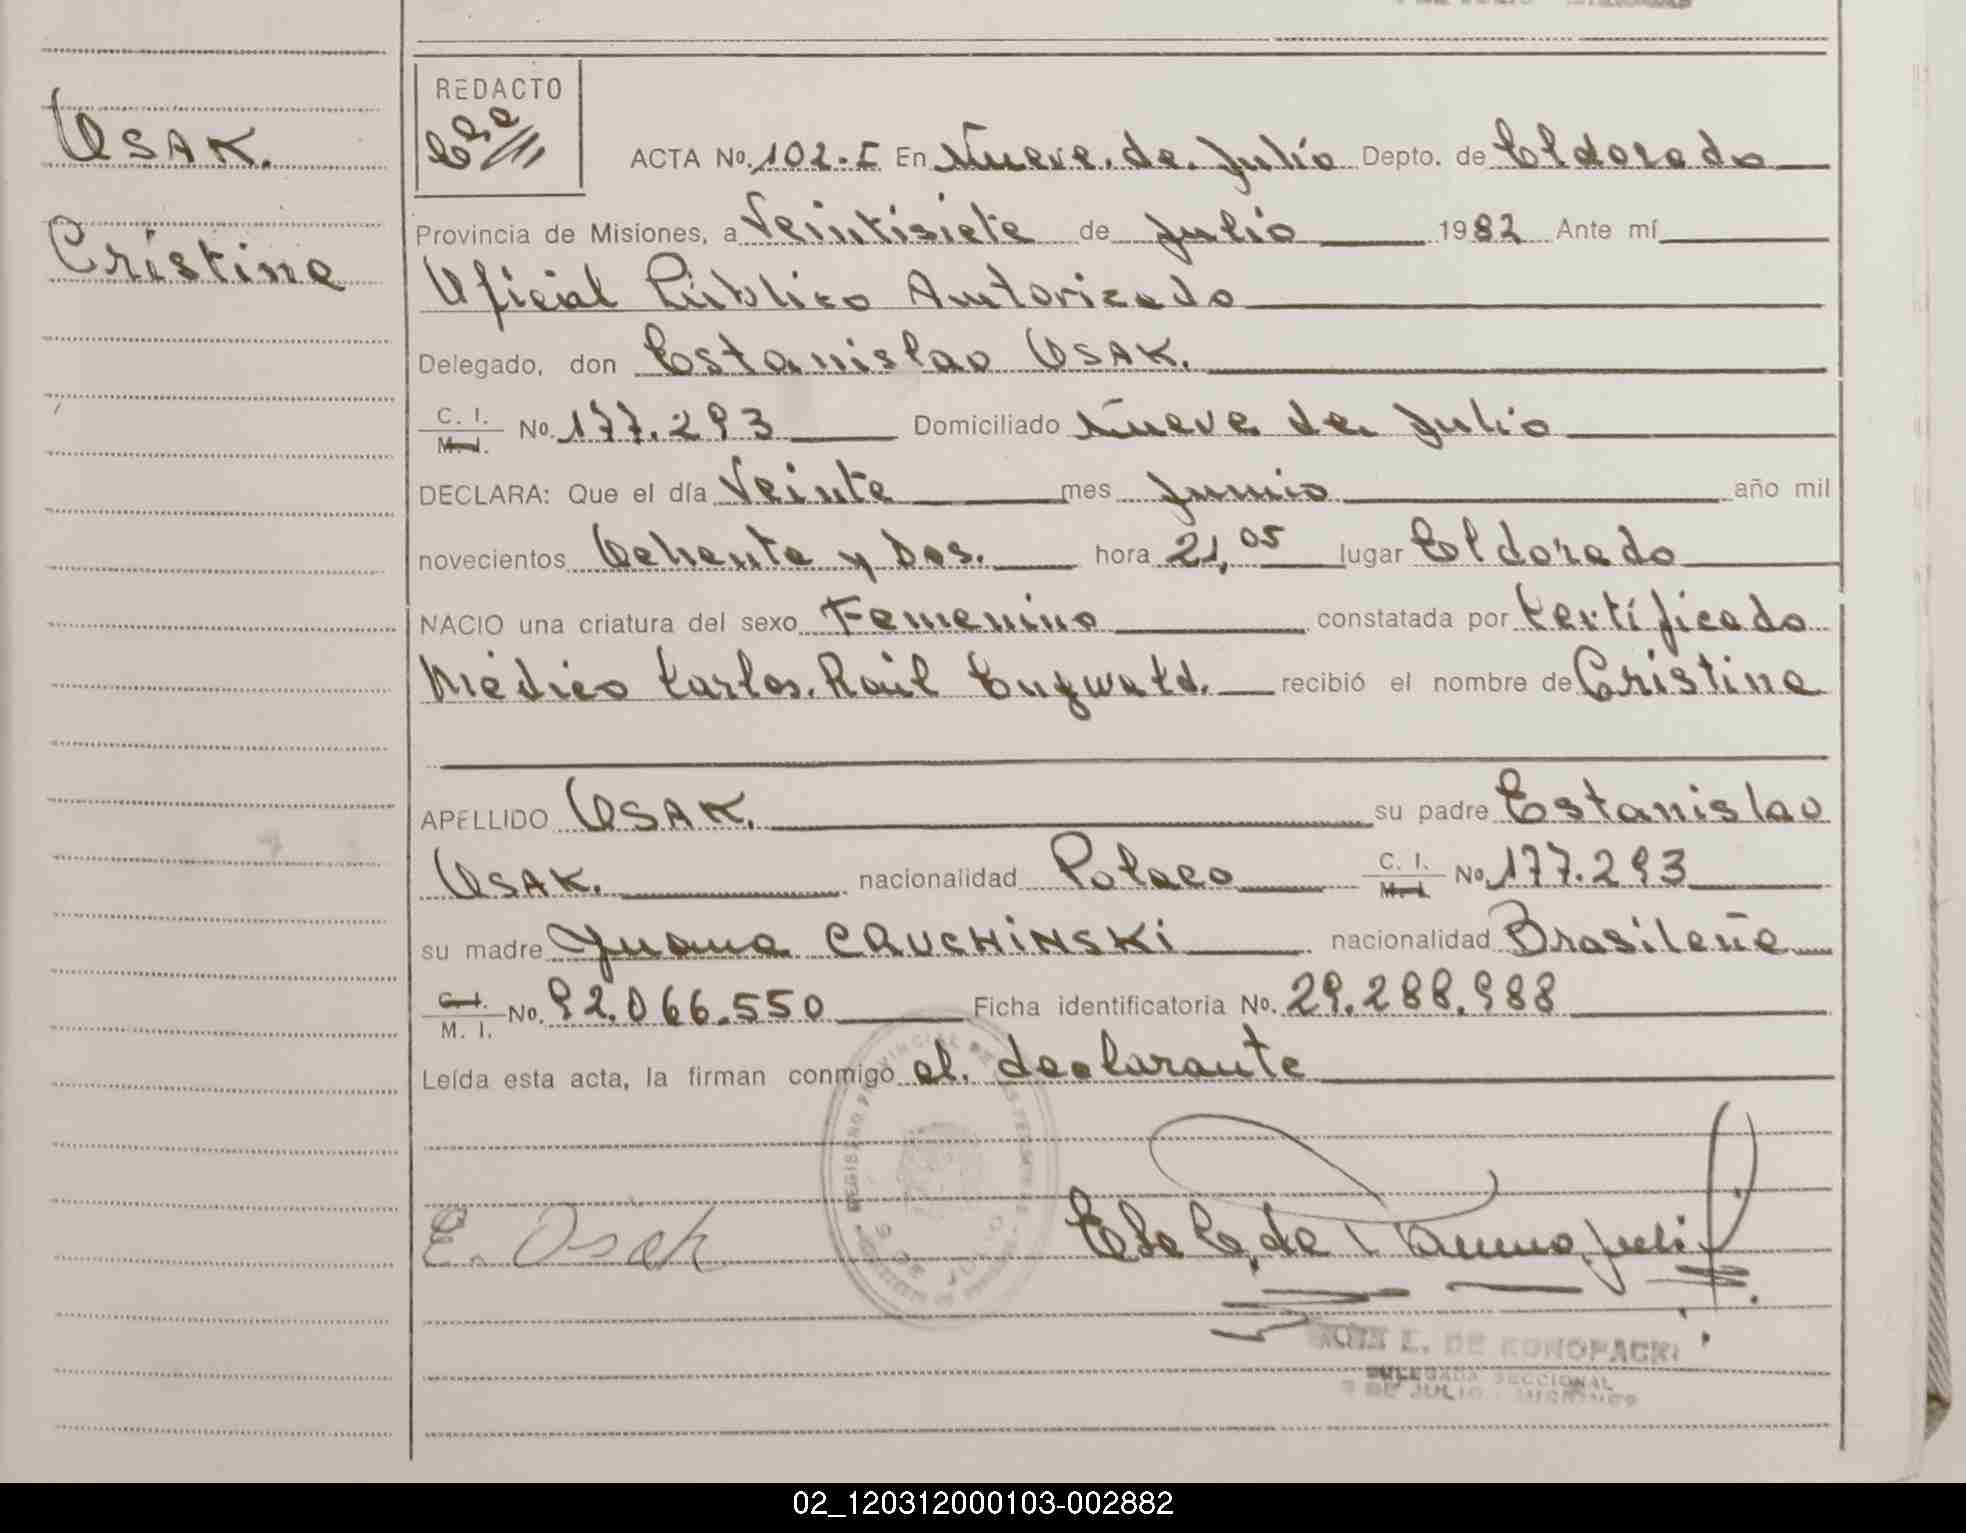 OSAK.
Cristina
REDACTO
ACTA No. 102-I En Nueve de Julio Depto. de Eldorado
Provincia de Misiones, a Veintisiete de Julio 1982 Ante mí
Oficial Público Autorizado
Delegado, don Estanislao OSAK.
C. I.
M. I. No. 177.293 Domiciliado Nueve de Julio
DECLARA: Que el día Veinte mes Junio año mil
novecientos Ochenta y Dos. hora 21,05 lugar Eldorado
NACIO una criatura del sexo Femenino constatada por Certificado
Médico Carlos Raúl recibió el nombre de Cristina
APELLIDO OSAK. su padre Estanislao
OSAK. nacionalidad Polaco C. I. M. I. No. 177.293
su madre Juana CRUCHINSKI nacionalidad Brasileña
C. I.
M. I. No. 92.066.550 Ficha identificatoria No. 29.288.988
Leída esta acta, la firman conmigo el declarante
E. Osak
REGISTRO PROVINCIAL DE LAS PERSONAS
9 DE JULIO
L. DE KONOPACKI
DELEGADA SECCIONAL
9 DE JULIO - MISIONES
02_120312000103-002882